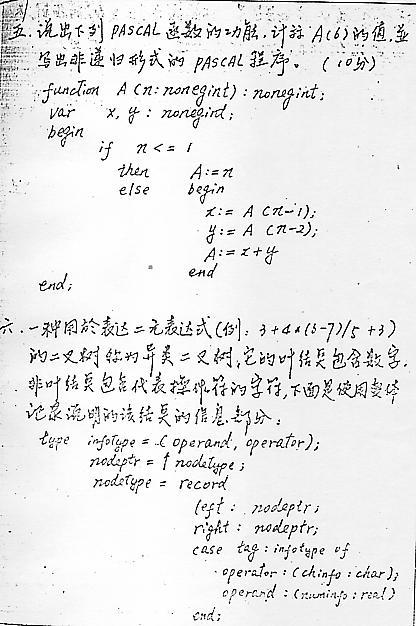 五. 说出下列 PASCAL 函数的功能, 计算 A(6) 的值, 並
写出非递归形式的 PASCAL 程序。 (10分)
function A (n: nonegint) : nonegint;
var x, y : nonegint;
begin
if n <= 1
then A:= n
else begin
x:= A (n-1);
y:= A (n-2);
A:= x+y
end
end;
六. 一种用於表达二元表达式 (例: 3+4*(3-7)/5+3)
的二叉树称为异类二叉树, 它的叶结点包含数字,
非叶结点包含代表操作符的字符, 下面是使用变体
记录说明的该结点的信息部分:
type infotype = (operand, operator);
nodeptr = ↑ nodetype;
nodetype = record
left : nodeptr;
right : nodeptr;
case tag : infotype of
operator : (chinfo : char);
operand : (numinfo : real)
end;